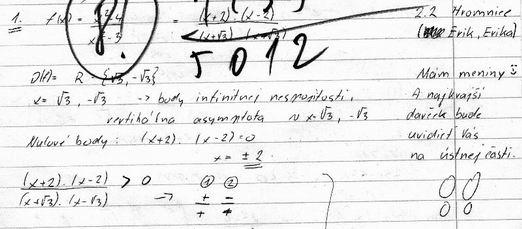 1. f(x) = = (x+2).(x-2)
5 0 1 2
D(f) = R - {√3, -√3}
x = √3, -√3 -> body infinitnej nespojitosti,
vertikálna asymptota v x=√3, -√3
Nulové body: (x+2).(x-2)=0
x = ±2.
(x+2).(x-2) > 0 ① ②
(x+√3).(x-√3) -> + -
+
2.2 Hromnice
( Erik, Erika)
Mám meniny
A najkrajší
darček bude
uvidieť Vás
na ústnej časti.